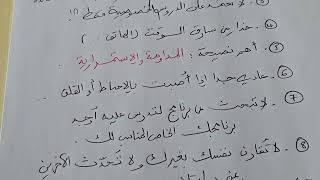 لا تعتمد على الدروس الخصوصية فقط!!
④ حذار من سارق الوقت (الهاتف)
⑤ أهم نصيحة: المداومة والاستمرارية
⑥ عادي جدا إذا أصبت بالإحباط أو القلق
⑦ لا تبحث عن برنامج لتدرس عليه أوجد
برنامجك الخاص المناسب لك.
⑧ لا تقارن نفسك بغيرك ولا تحدث الآخرين
عن